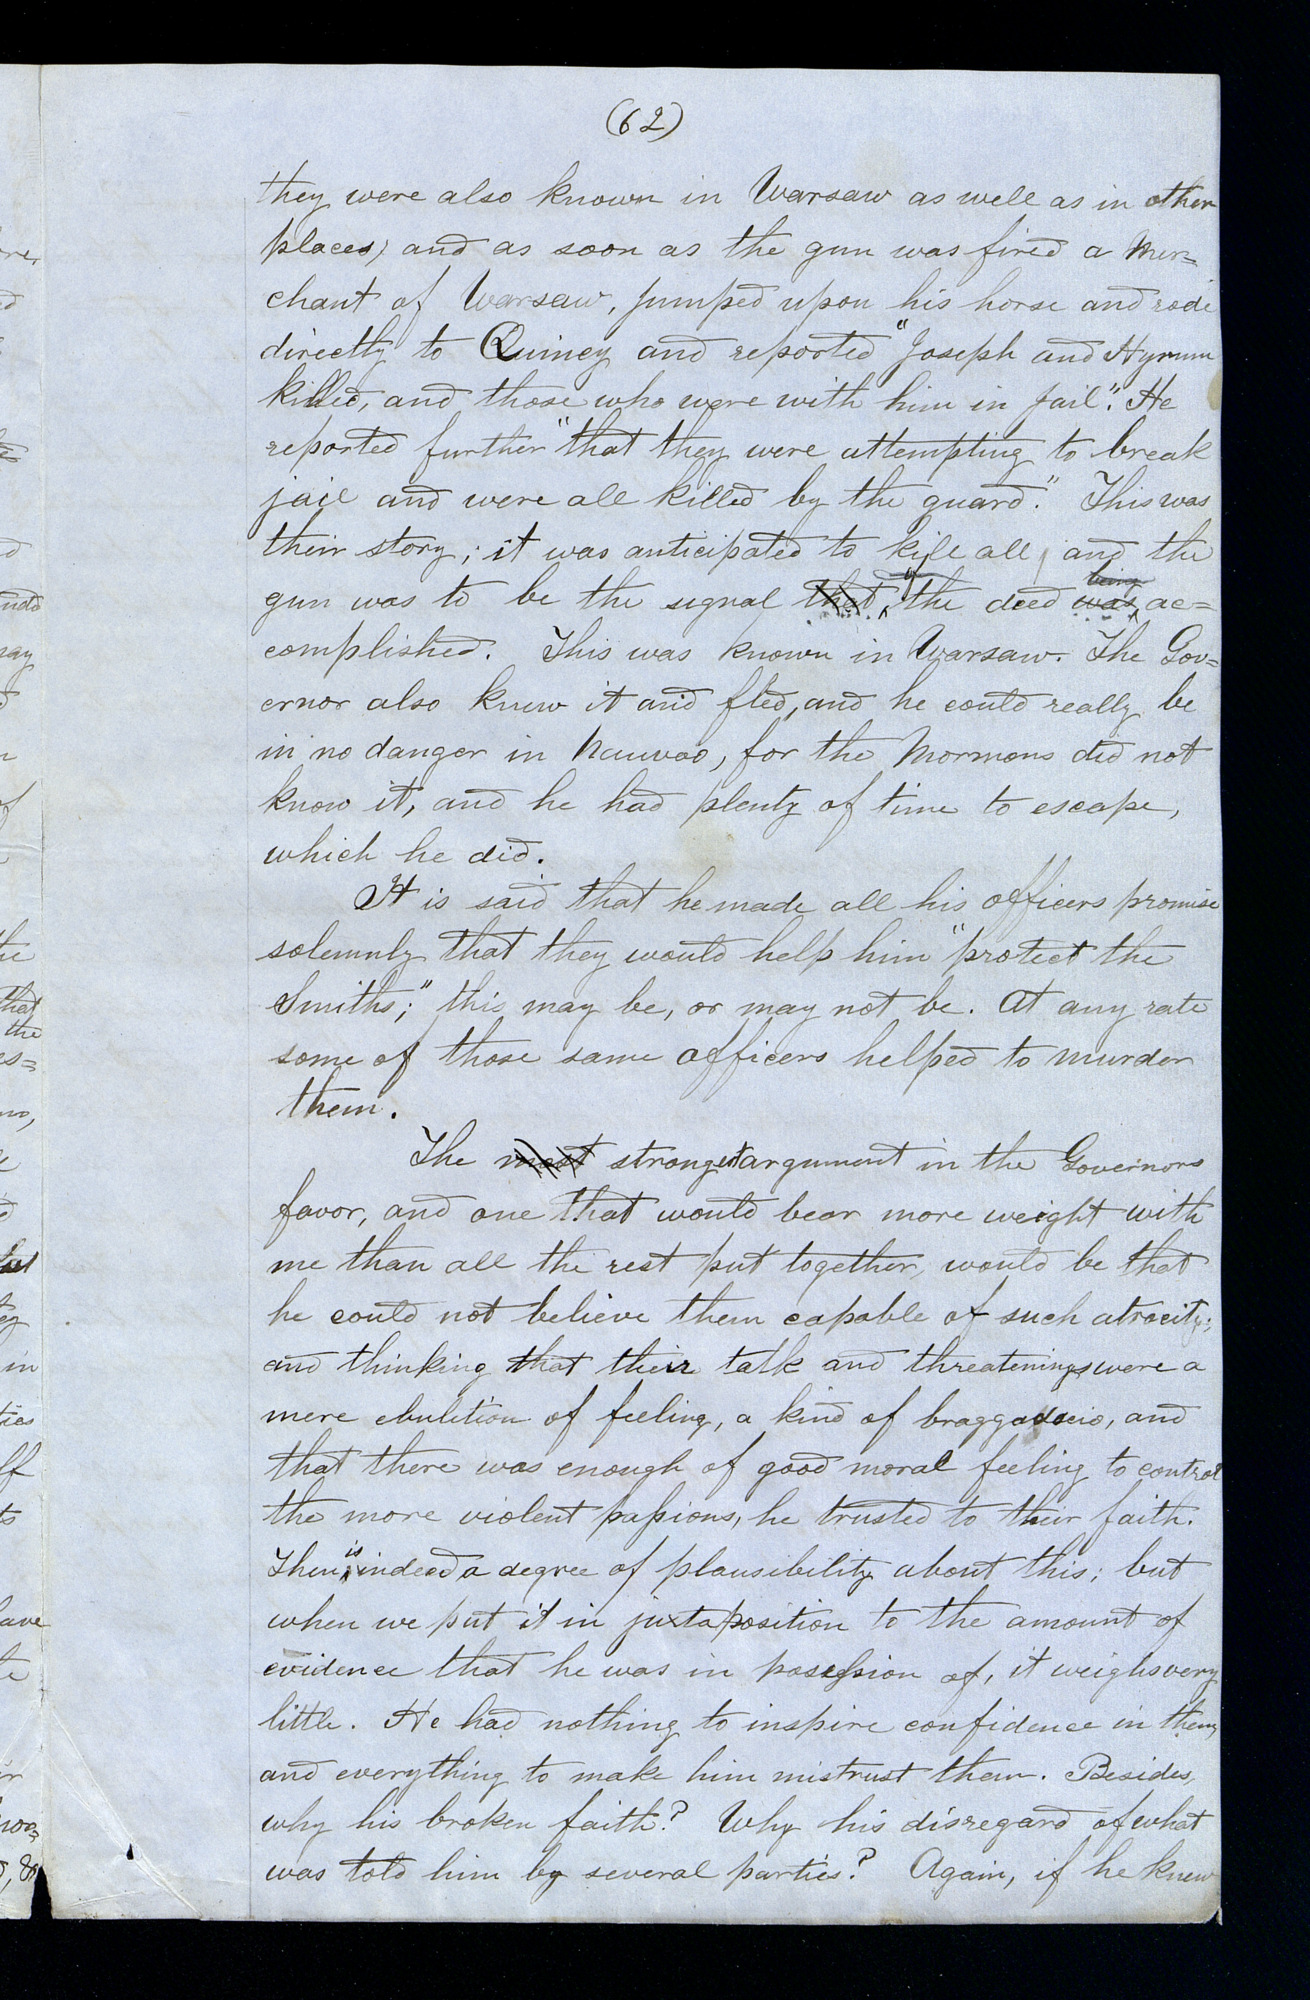 (62)
they were also known in Warsaw as well as in other
places; and as soon as the gun was fired a Mer=
chant of Warsaw, jumped upon his horse and rode
directly to Quincy and reported "Joseph and Hyrum
killed, and those who were with him in jail". He
reported further "that they were attempting to break
jail and were all killed by the guard." This was
their story; it was anticipated to kill all, and the
gun was to be the signal that of the deed was being ac=
complished. This was known in Warsaw. The Gov=
ernor also knew it and fled, and he could really be
in no danger in Nauvoo, for the Mormons did not
know it, and he had plenty of time to escape,
which he did.
It is said that he made all his officers promise
solemnly that they would help him "protect the
Smiths;" this may be, or may not be. At any rate
some of those same officers helped to murder
them.
The most strongest argument in the Governors
favor, and one that would bear more weight with
me than all the rest put together, would be that
he could not believe them capable of such atrocity;
and thinking that their talk and threatenings were a
mere ebulition of feeling, a kind of braggadocio, and
that there was enough of good moral feeling to control
the more violent passions, he trusted to their faith.
There is indeed a degree of plausibility about this; but
when we put it in juxtaposition to the amount of
evidence that he was in posession of, it weighs very
little. He had nothing to inspire confidence in them,
and everything to make him mistrust them. Besides,
why his broken faith? Why his disregard of what
was told him by several parties? Again, if he knew